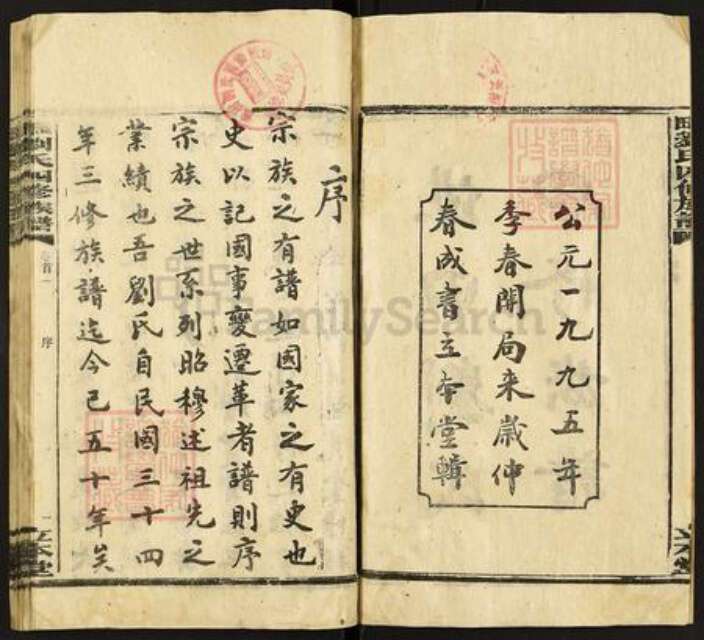 公元一九九五年
季春開局来歲仲
春成書立本堂輯
序
宗族之有譜如國家之有史也
史以記國事變遷革者譜則序
宗族之世系列昭穆述祖先之
業績也吾劉氏自民國三十四
年三修族譜迄今已五十年矣
劉氏四修族譜
卷首一
序
一
立本堂
劉氏四修族譜
立本堂
FamilySearch